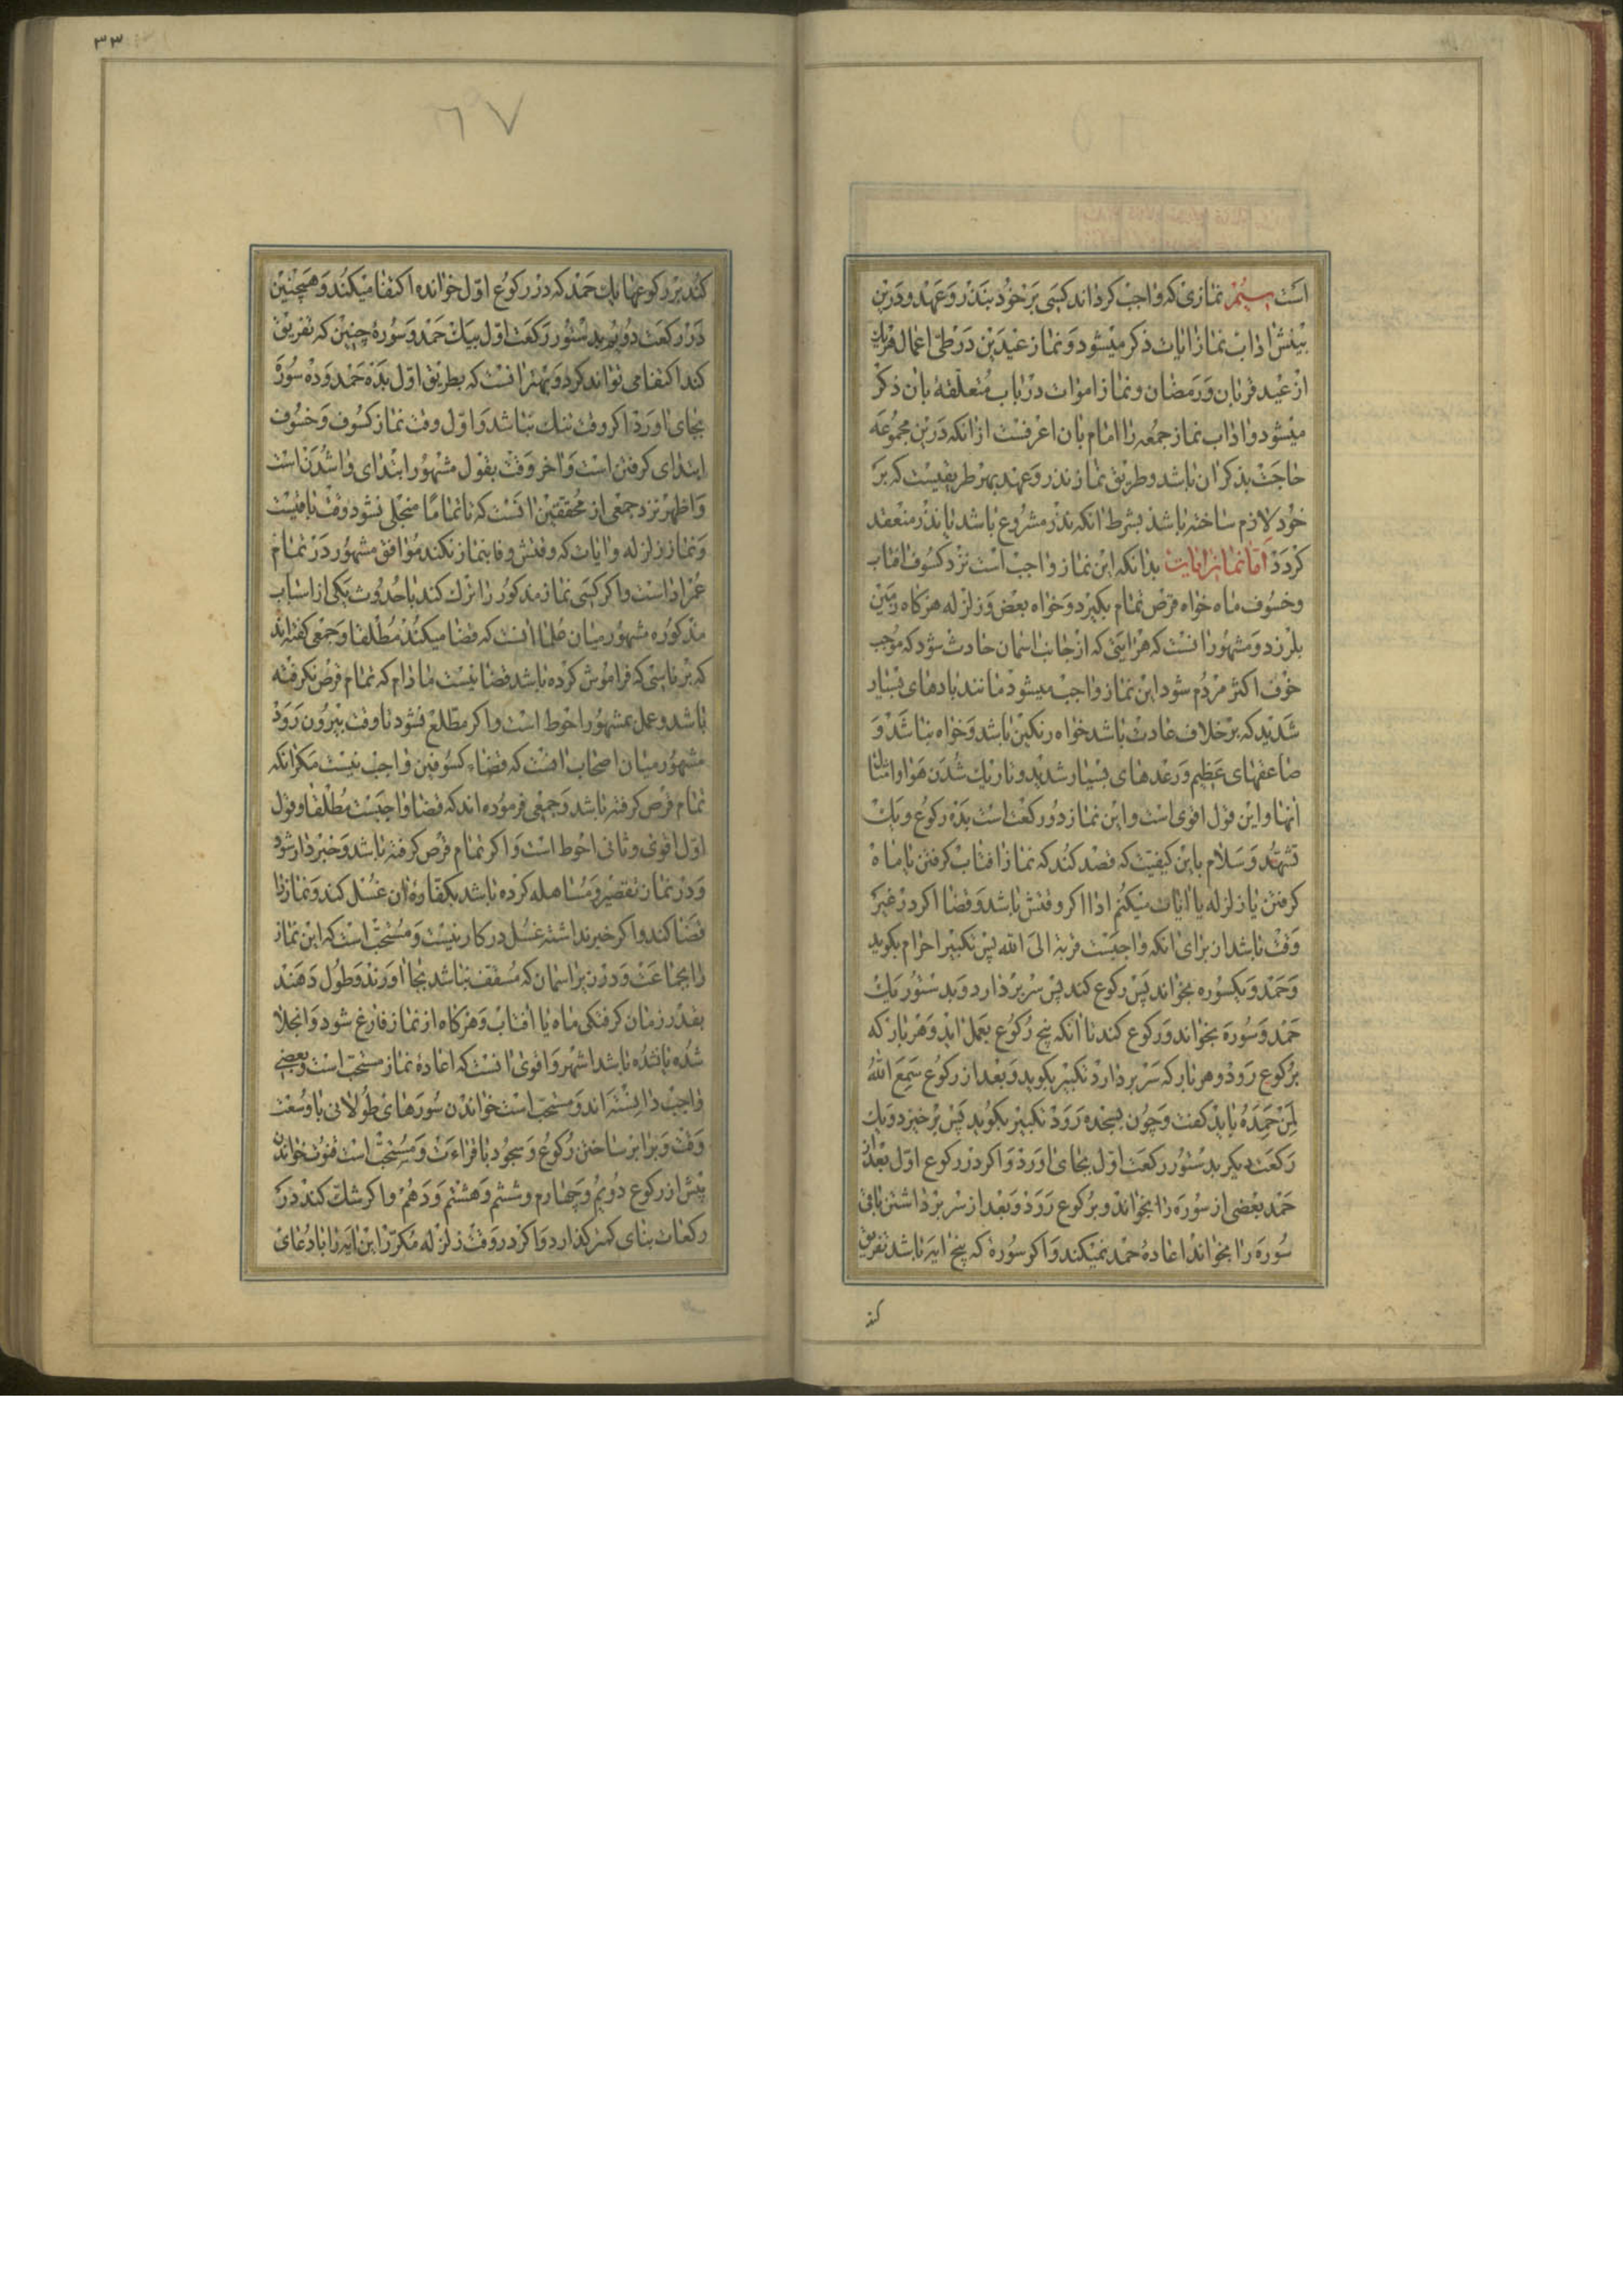 است سیُم نمازی که واجب کرداند کسی بر خود بنذر و عهد و درین
بینش اداب نماز ایات ذکر میشود و نماز عیدین در طی اعمال هریک
از عید قربان و رمضان و نماز اموات در باب متعلقه بان ذکر
میشود و اداب نماز جمعه را امام بان اعرفست از انکه درین مجموعه
حاجت بذکر ان باشد و طریق نماز نذر و عهد بهر طریقیست که بر
خود لازم ساخته باشد بشرط انکه نذر مشروع باشد یا نذر منعقد
کردد اما نماز ایات بدانکه این نماز واجب است نزد کسوف افتاب
و خسوف ماه خواه قرص تمام بکیرد و خواه بعض و زلزله هرکاه زمین
بلرزد و مشهور انست که هر ایتی که از جانب اسمان حادث شود که موجب
خوف اکثر مردم شود این نماز واجب میشود مانند بادهای بسیار
شدید که بر خلاف عادت باشد خواه رنکین باشد و خواه نباشد و
صاعقهای عظیم و رعدهای بسیار شدید و تاریک شدن هوا و امثال
انها و این قول اقوی است و این نماز دو رکعت است بده رکوع و یک
تشهد و سلام باین کیفیت که قصد کند که نماز افتاب کرفتن یا ماه
کرفتن یا زلزله یا ایات میکنم ادا اکر وقتش باشد و قضا اکر در غیر
وقت باشد از برای انکه واجبست قربة الی الله پس تکبیر احرام بکوید
و حمد و یکسوره بخواند پس رکوع کند پس سر بردارد و بدستور یک
حمد و سوره بخواند و رکوع کند تا انکه پنج رکوع بعمل اید و هر بار که
برکوع رود و هر بار که سر بردارد تکبیر بکوید و بعد از رکوع سمع الله
لمن حمده باید کفت و چون بسجده رود تکبیر بکوید پس برخیزد و یک
رکعت دیکر بدستور رکعت اول بجای اورد و اکر در رکوع اول بعد از
حمد بعضی از سوره را بخواند و برکوع رود و بعد از سر برداشتن باقی
سوره را بخواند اعاده حمد نمیکند و اکر سورۀ که پنج ایه باشد تفریق
کند
۳۳
٦٧
کند بر رکوعها یک حمد که در رکوع اول خوانده اکتفا میکند و همچنین
در رکعت دویم بدستور رکعت اول بیک حمد و سورۀ چنین که تفریق
کند اکتفا می تواند کرد و بهتر انست که بطریق اول بده حمد و ده سوره
بجای اورد اکر وقت تنک نباشد و اول وقت نماز کسوف و خسوف
ابتدای کرفتن است و اخر وقت بقول مشهور ابتدای واشدن است
و اظهر نزد جمعی از محققین انست که تا تماما منجلی نشود وقت باقیست
و نماز زلزله و ایات که وقتش وفا بنماز نکند موافق مشهور در تمام
عمر اداست و اکر کسی نماز مذکور را ترک کند با حدوث یکی از اسباب
مذکوره مشهور میان علما انست که قضا میکند مطلقا و جمعی کفته اند
که بر ناسی که فراموش کرده باشد قضا نیست مادام که تمام قرص نکرفته
باشد و عمل بمشهور احوط است و اکر مطلع نشود تا وقت بیرون رود
مشهور میان اصحاب انست که قضاء کسوفین واجب نیست مکر انکه
تمام قرص کرفته باشد و جمعی فرموده اند که قضا واجبست مطلقا و قول
اول اقوی و ثانی احوط است و اکر تمام قرص کرفته باشد و خبردار شود
و در نماز تقصیر و مساهله کرده باشد بکفارۀ ان غسل کند و نماز را
قضا کند و اکر خبر نداشته غسل در کار نیست و مستحب است که این نماز
را بجماعت و در زیر اسمان که مسقف نباشد بجا اورند و طول دهند
بقدر زمان کرفتکی ماه یا افتاب و هرکاه از نماز فارغ شود و انجلا
شده یا نشده باشد اشهر و اقوی انست که اعادۀ نماز مستحب است و بعضی
واجب دانسته اند و مستحب است خواندن سورهای طولانی با وسعت
وقت و برابر ساختن رکوع و سجود با قراءت و مستحب است قنوت خواندن
پیش از رکوع دویم و چهارم و ششم و هشتم و دهم و اکر شک کند در
رکعات بنای کمتر کذارد و اکر در وقت زلزله مکرر این ایه را با دعای